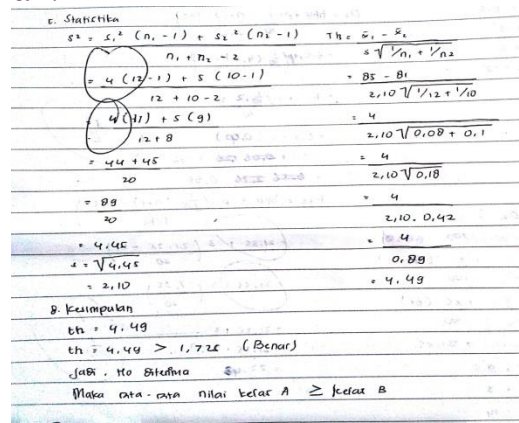 5. Statistika
s² = s₁² (n₁ - 1) + s₂² (n₂ - 1)
n₁ + n₂ - 2
= 4 (12 - 1) + 5 (10 - 1)
12 + 10 - 2
= 4 (11) + 5 (9)
12 + 8
= 44 + 45
20
= 89
20
= 4,45
s = √4,45
= 2,10
Th = x̄₁ - x̄₂
s √1/n₁ + 1/n2
= 85 - 81
2,10 √1/12 + 1/10
= 4
2,10 √0,08 + 0,1
= 4
2,10 √0,18
= 4
2,10 . 0,42
= 4
0,89
= 4,49
8. Kesimpulan
th = 4,49
th = 4,49 > 1,725 (Benar)
Jadi, Ho diterima
Maka rata-rata nilai kelas A ≥ kelas B